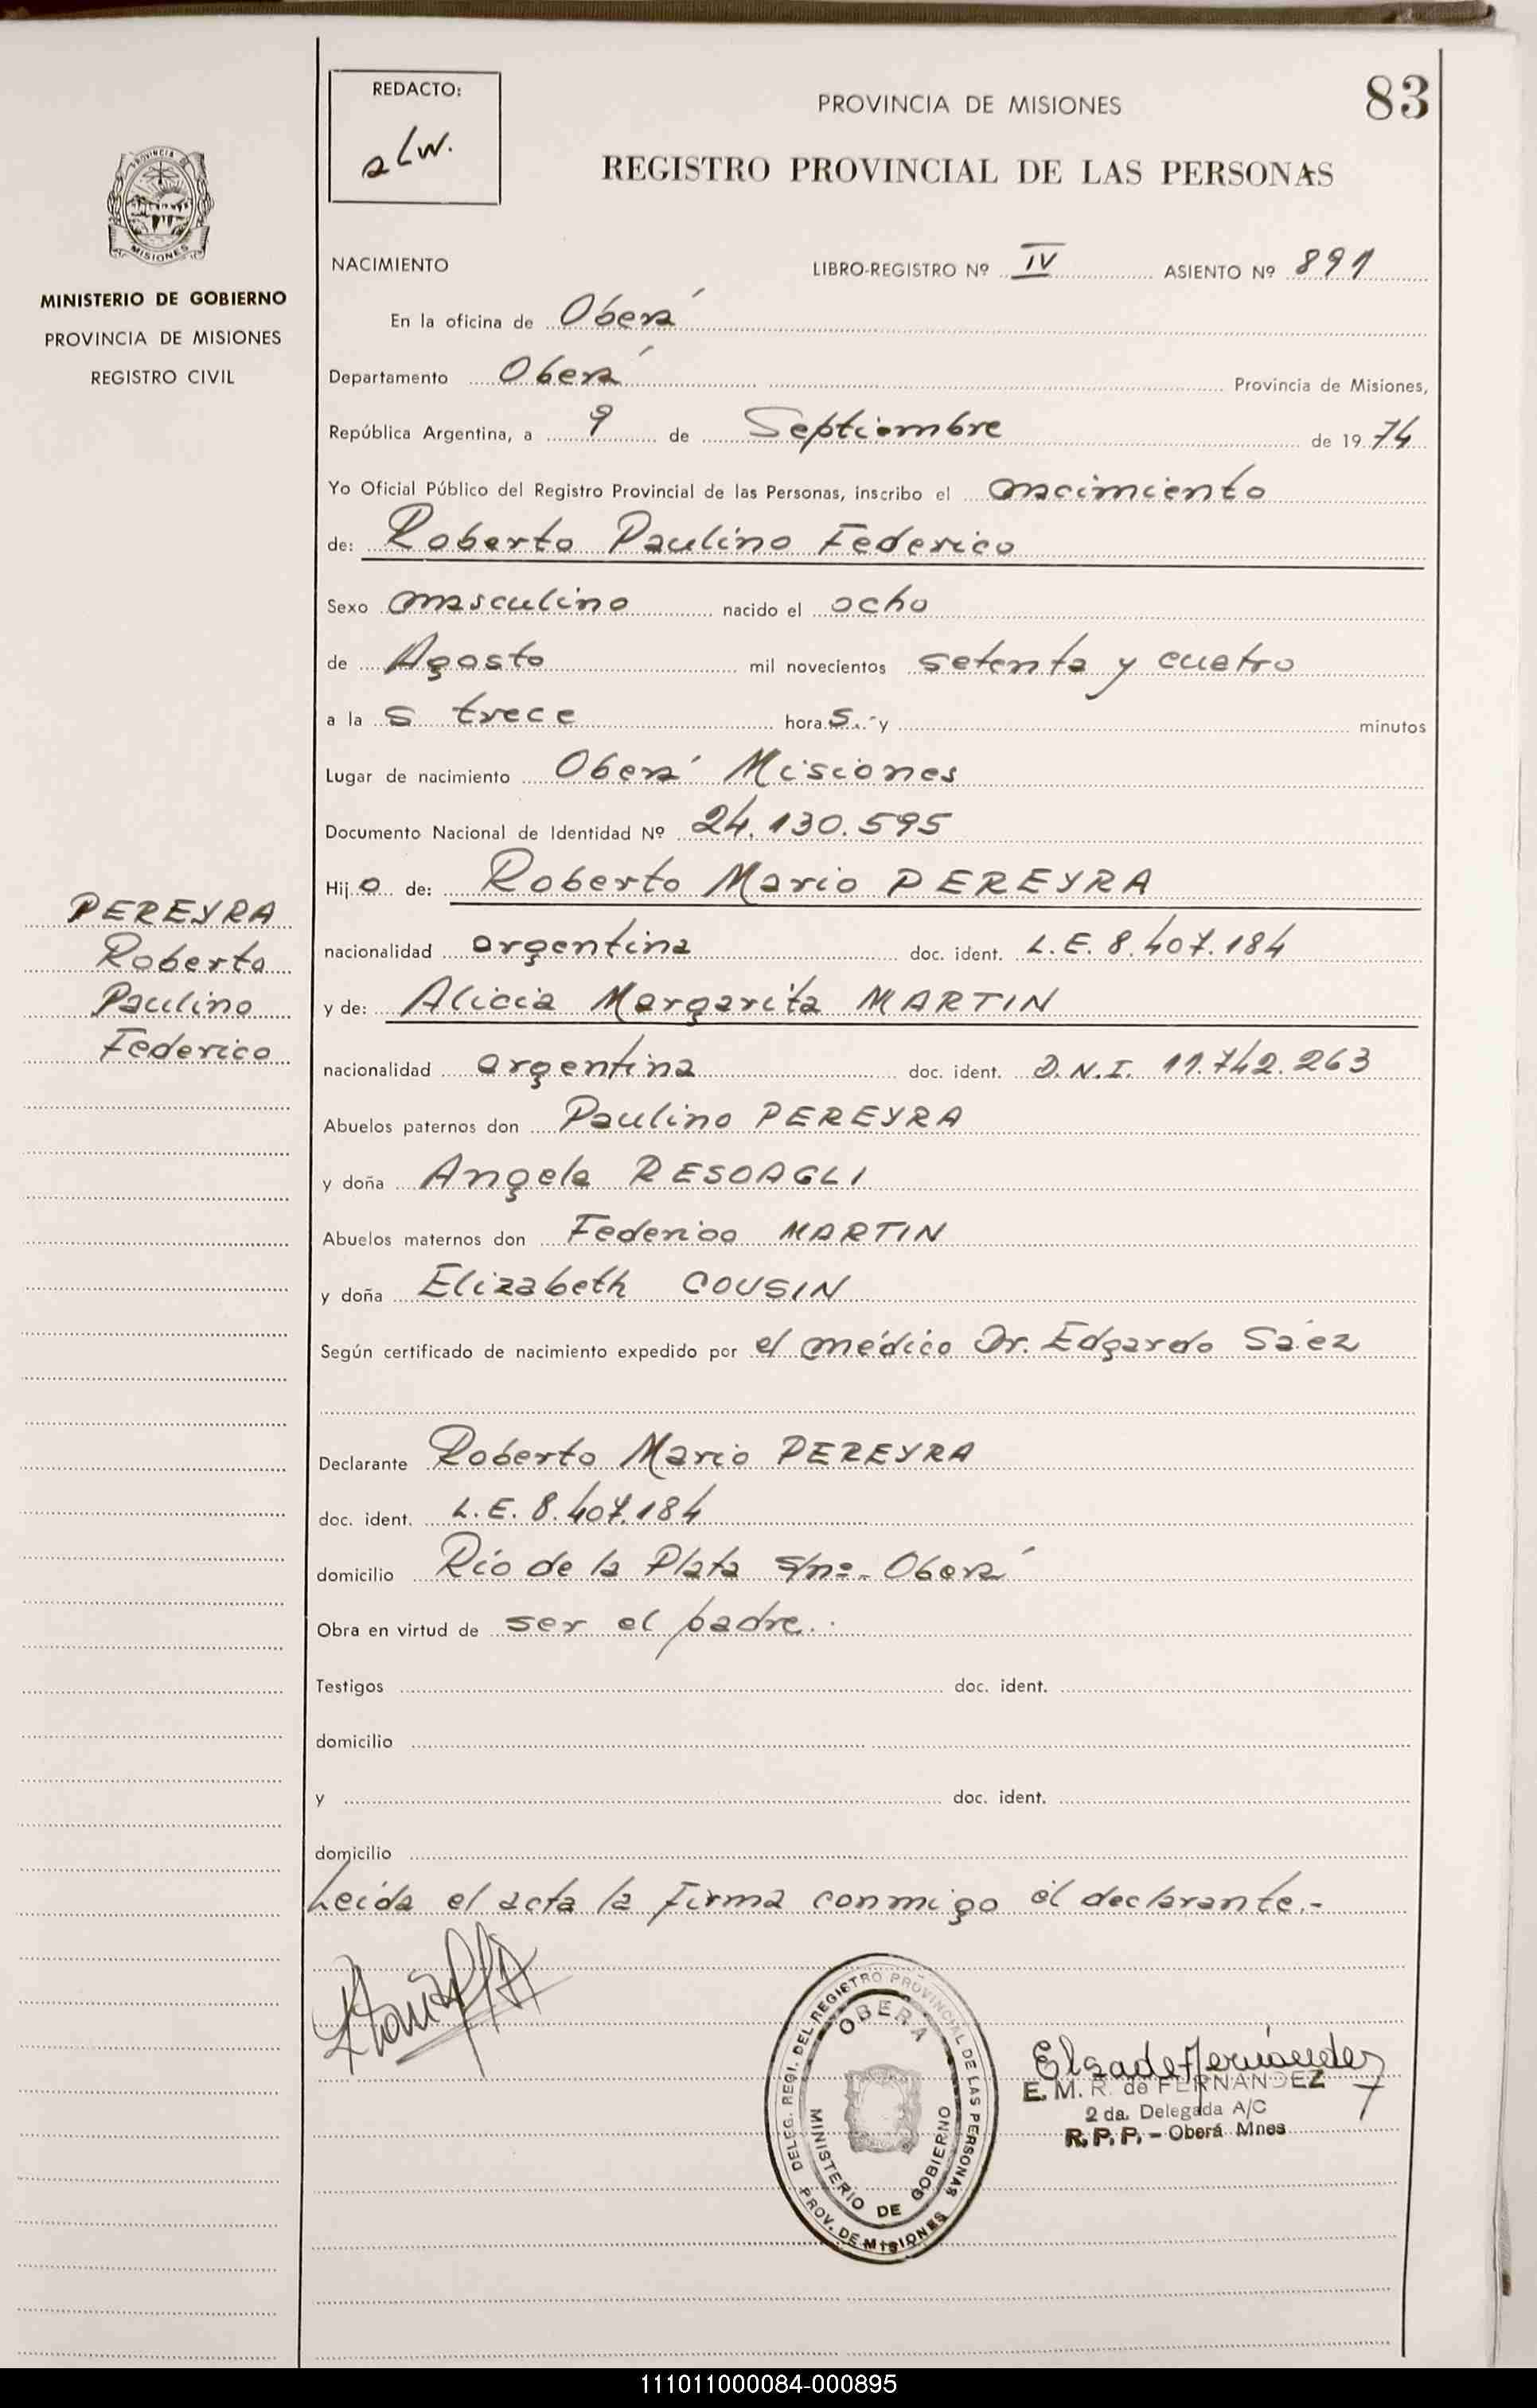 83
REDACTO:
PROVINCIA DE MISIONES
REGISTRO PROVINCIAL DE LAS PERSONAS
PROVINCIA DE
MISIONES
MINISTERIO DE GOBIERNO
PROVINCIA DE MISIONES
REGISTRO CIVIL
NACIMIENTO LIBRO-REGISTRO Nº IV ASIENTO Nº 891
En la oficina de Oberá
Departamento Oberá Provincia de Misiones,
República Argentina, a 9 de Septiembre de 1974
Yo Oficial Público del Registro Provincial de las Personas, inscribo el nacimiento
de: Roberto Paulino Federico
Sexo masculino nacido el ocho
de Agosto mil novecientos setenta y cuatro
a las trece horas.- y minutos
Lugar de nacimiento Oberá Misiones
Documento Nacional de Identidad Nº 24.130.595
Hijo de: Roberto Mario PEREYRA
nacionalidad argentina doc. ident. L.E. 8.407.184
y de: Alicia Margarita MARTIN
nacionalidad argentina doc. ident. D.N.I. 11.742.263
Abuelos paternos don Paulino PEREYRA
y doña Angela RESOAGLI
Abuelos maternos don Federico MARTIN
y doña Elizabeth COUSIN
Según certificado de nacimiento expedido por el médico Dr. Edgardo Sáez
Declarante Roberto Mario PEREYRA
doc. ident. L.E. 8.407.184
domicilio Río de la Plata s/nº.- Oberá
Obra en virtud de ser el padre.-
Testigos doc. ident.
domicilio
y doc. ident.
domicilio
Leída el acta la firma conmigo el declarante.-
PEREYRA
Roberto
Paulino
Federico
DELEG. REGI. DEL REGISTRO PROVINCIAL DE LAS PERSONAS
OBERA
MINISTERIO DE GOBIERNO
PROV. DE MISIONES
Elsa de Fernández
E. M. R. de FERNANDEZ
2 da. Delegada A/C
R. P. P. - Oberá Mnes
111011000084-000895